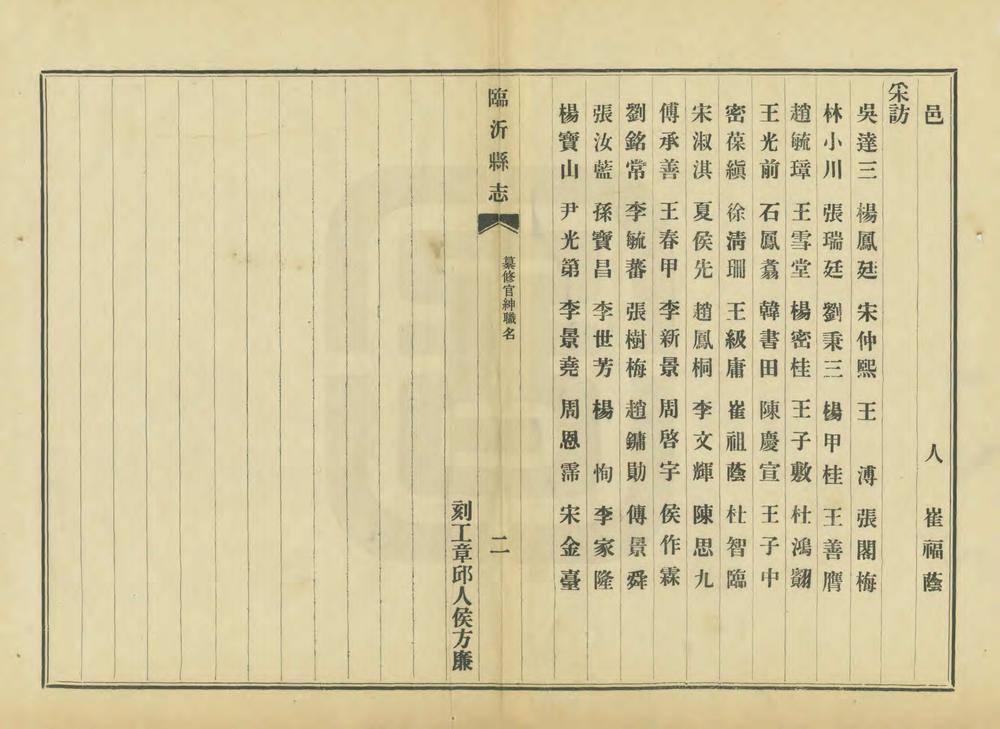 邑 人 崔福蔭
采訪
吳達三 楊鳳廷 宋仲熙 王溥 張閣梅
林小川 張瑞廷 劉秉三 楊甲桂 王善膺
趙毓璋 王雪堂 楊密桂 王子敷 杜鴻翽
王光前 石鳳翥 韓書田 陳慶宣 王子中
密葆縝 徐清珊 王級庸 崔祖蔭 杜智臨
宋淑淇 夏侯先 趙鳳桐 李文輝 陳思九
傅承善 王春甲 李新景 周啓宇 侯作霖
劉銘常 李毓蕃 張樹梅 趙鏞勛 傅景舜
張汝藍 孫寶昌 李世芳 楊恂 李家隆
楊寶山 尹光第 李景堯 周恩霈 宋金臺
臨沂縣志 纂修官紳職名 二
刻工章邱人侯方廉